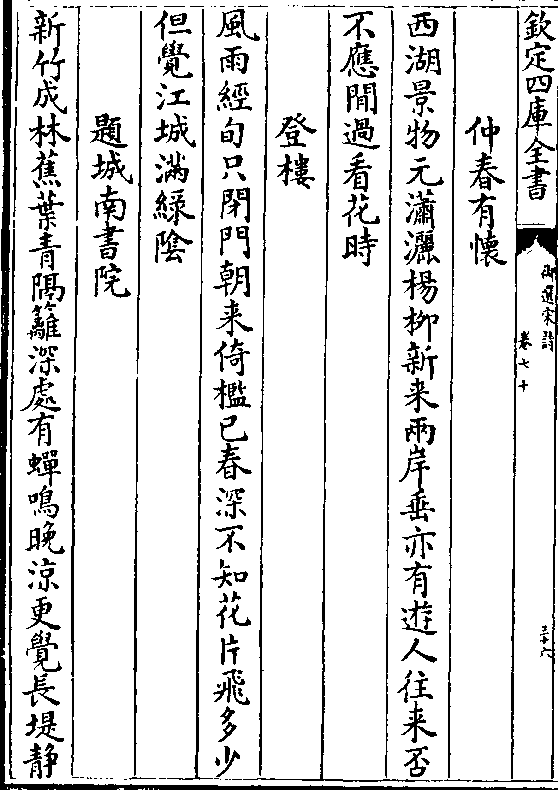 欽定四庫全書
御選宋詩
卷七十
三十六
仲春有懷
西湖景物元瀟灑楊栁新来兩岸垂亦有遊人往来否
不應閒過看花時
登樓
風雨經旬只閉門朝来倚檻已春深不知花片飛多少
但覺江城滿綠陰
題城南書院
新竹成林蕉葉青隔籬深處有蟬鳴晚涼更覺長堤静